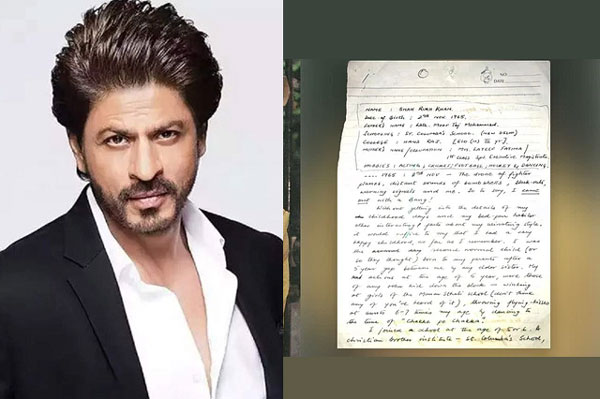 NO.
DATE
NAME : SHAH RUKH KHAN
Date of Birth : 2nd NOV. 1965.
FATHER'S NAME : LATE. Meer Taj Mohammed.
SCHOOLING : ST. COLUMBA'S SCHOOL. (NEW DELHI)
COLLEGE : HANS RAJ.
MOTHER'S NAME/OCCUPATION : MRS. LATEEF FATIMA
1st CLASS Executive Magistrate
HOBBIES : ACTING, CRICKET, FOOTBALL, HOCKEY & DANCING.
1965 : 2nd NOV — The drone of fighter
planes, distant sounds of bombs, black-outs,
warning signals and me. So to say, I came
out with a Bang!
Without getting into the details of my
childhood days and my bed pan habits
other interesting facts about my
it would suffice to say that I had a very
happy childhood, as far as I remember. I was
the normal child (or
so they thought) born to my parents after a
5 year gap between me & my older sister. My
actions at the age of 5 years, were those
of any other kid down the block — winking
at girls of the school (don't think
any of you've heard of it), throwing flying-kisses
at aunts 6-7 times my age & dancing to
the tune of "Chakke pe Chakka".
I joined a school at the age of 5 or 6. A
christian brother institute — St. Columba's School,